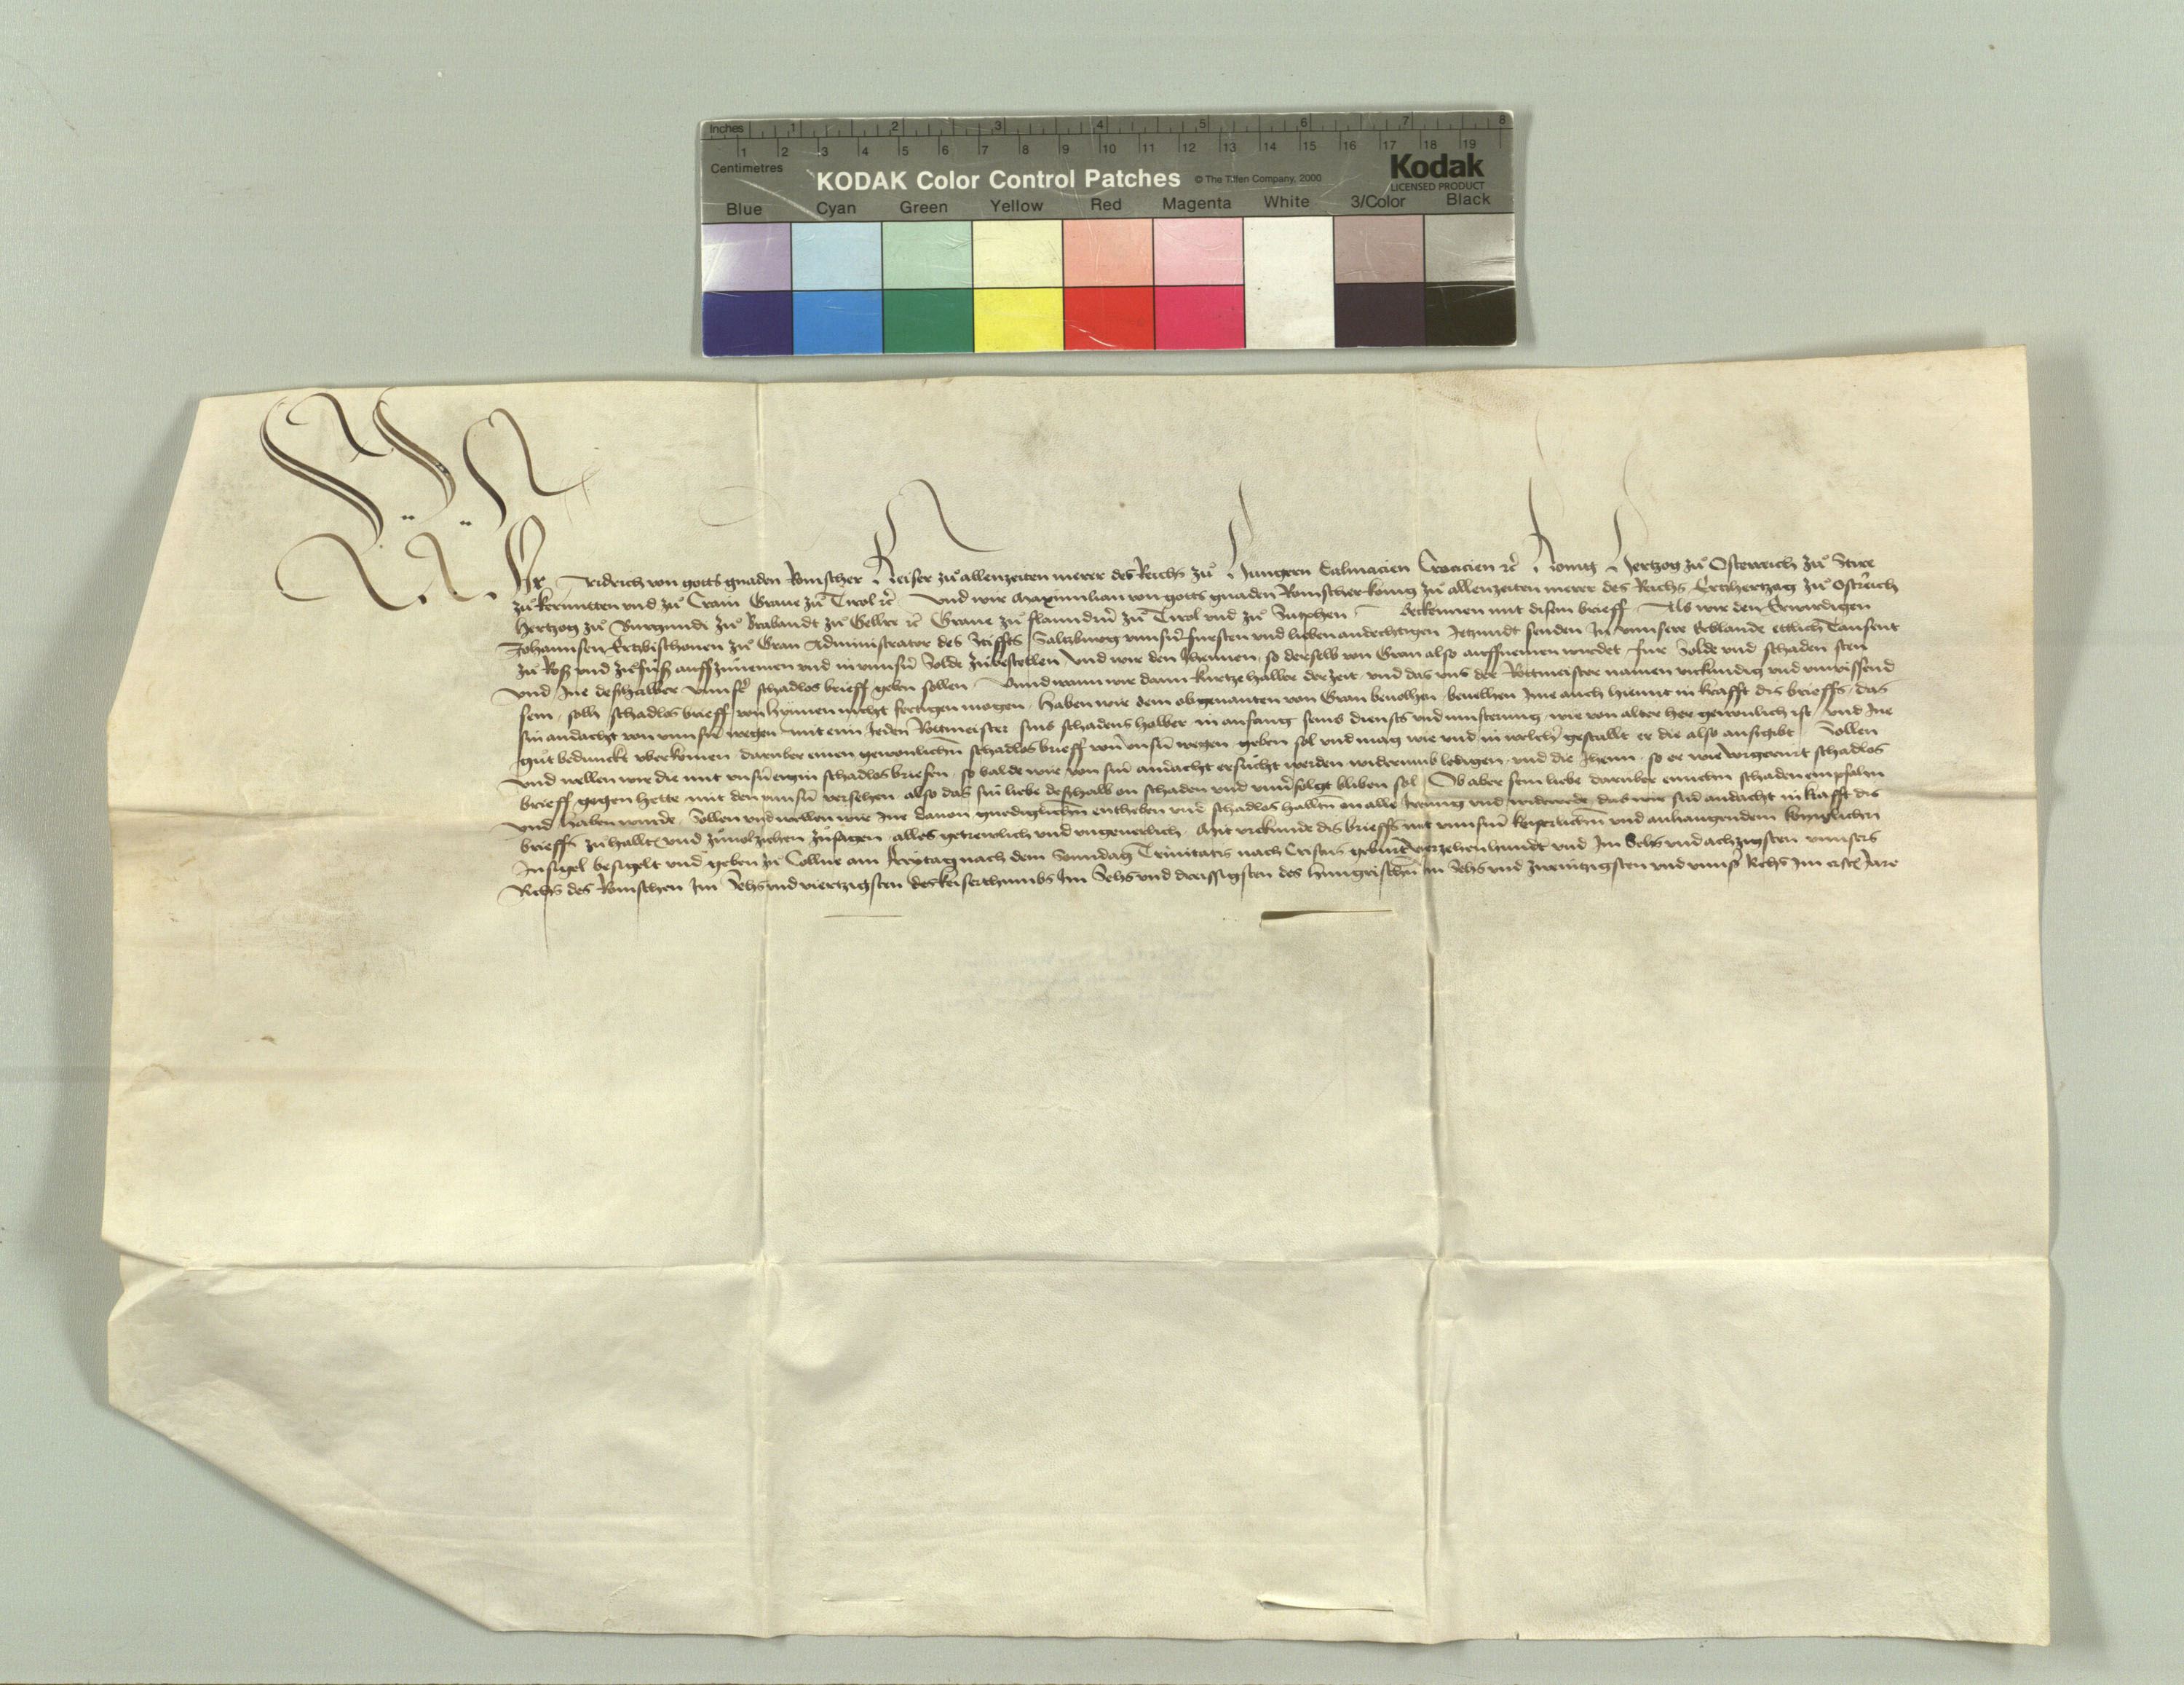 Inches 1 2 3 4 5 6 7 8
1 2 3 4 5 6 7 8 9 10 11 12 13 14 15 16 17 18 19
Centimetres
KODAK Color Control Patches © The Tiffen Company, 2000 Kodak
LICENSED PRODUCT
Blue Cyan Green Yellow Red Magenta White 3/Color Black
Wir Fridrich von gotts gnaden Romischer Keiser zů allenzeiten merer des Reichs zů Hungern Dalmacien Croacien ꝛc̃ Konig Hertzog zů Osterreich zů Stire
zů kernntten vnd zů Crain Graue zů Tirol ꝛc̃ Vnd wir Maximilian von gotts gnaden Romischer konig zů allenzeiten merer des Reichs Ertzhertzog zů Ostr̃eich
Hertzog zů Burgundi zů Brabandt zů Gellre ꝛc̃ Graue zů flanndrñ zů Tirol vnd zů Zutphen Bekennen mit disem brieff Als wir den Erwirdigen
Johannsen Ertzbischouen zů Gran Administrator des Stiffts Saltzburg vnnsñ fursten vnd lieben andechtigen Jetzundt senden In vnnsere Erblande ettlich Tausent
zů Rosz vnd zů fůsz auffzůnemen vnd in vnnsñ Solde zůbestellen Vnd wir den Jhennen so derselb von Gran also auffnemen wurdet fur Solde vnd schaden sten
vnd Jne deszhalber vnnsr̃ schadlos brieff geben sollen Vnnd wann wir dann kurtze halber der zeit vnd das vns der Rottmeister namen vnkundig vnd vnwissend
sein solh schadlos brieff von hynnen nicht fertigen mogen Haben wir dem obgenanten von Gran beuolhen beuelhen Jme auch hiemit in krafft dis brieffs das
sin andacht von vnnsñ wegen mit eim Jeden Rottmeister sins schadens halber in anfang seins diensts vnd musterung wie von alter her gewonlich ist vnd Jne
gůt beduncke vberkomen darůber einen gewonlichem̃ schadlos brieff von vnsñ wegen geben sol vnd mag wie vnd in welicher gestallt er die also ausgibt Sollen
vnd wellen wir die mit vnsñ eigin schadlosbriefen so balde wir von sinr̃ andacht ersucht werden widerumb ledigen vnd die Jhenn so er wie vorgerurt schadlos
brieff gegen hette mit den vnnsñ versehen also das sin liebe deszhalb on schaden vnd vnuerfolgt bliben sol Ob aber sein liebe darůber einichen schaden empfahn
vnd haben wurde Sollen vnd wellen wir Jne dauon gnediglichem̃ entheben vnd schadlos hallten on alle Irrung vnd widerrede das wir sinr̃ andacht in krafft dis
brieffs zů hallten vnd zůuolziehen zůsagen alles getrewlich vnd vngeuerlich Mit vrkunde dis brieffs mit vnnsñ keyserlichem̃ vnd anhangendem konyglichen
Insigel besigelt vnd geben zů Collne am freytag nach dem Sonndag Trinitatis nach Cristus geburt̃ vierzehenhundt vnd Im Sehs vnd achzigsten vnnsers
Richs des Romischen Im Sehs vnd viertzigsten des keiserthumbs Im Sehs vnd dreissigsten des hungrischen im Sehs vnd zwentzigsten vnd vnnsr̃ Richs Im ersten Jare